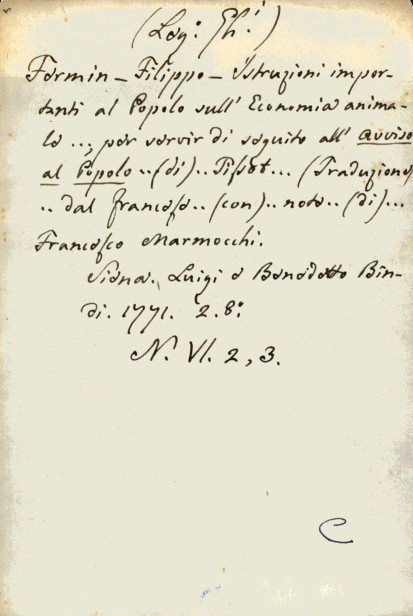 (Leg: Gh:)
Fermin - Filippo - Istruzioni impor-
tanti al Popolo sull' Economia anima-
le ..., per servir di seguito all' avviso
al Popolo ..(di).. Tissot... (Traduzione
.. dal francese.. (con).. note.. (di)...
Francesco Marmocchi.
Siena. Luigi e Benedetto Bin-
di. 1771. 2. 8:
N. VI. 2, 3.
C